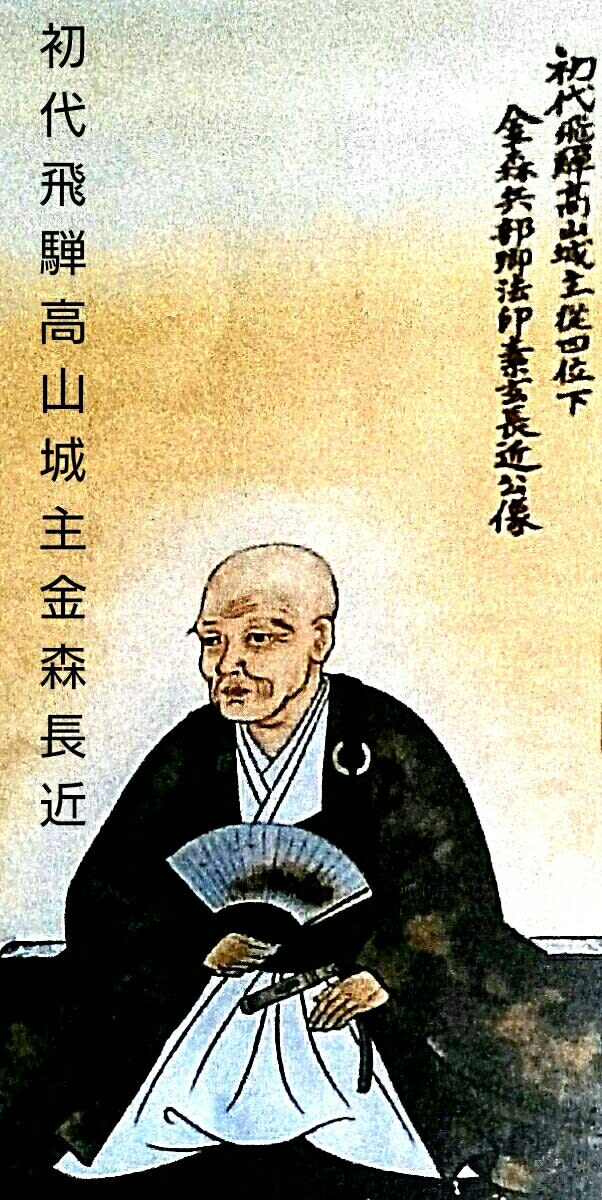 初代飛騨高山城主従四位下
金森兵部卿法印素玄長近公像
初代飛騨高山城主金森長近